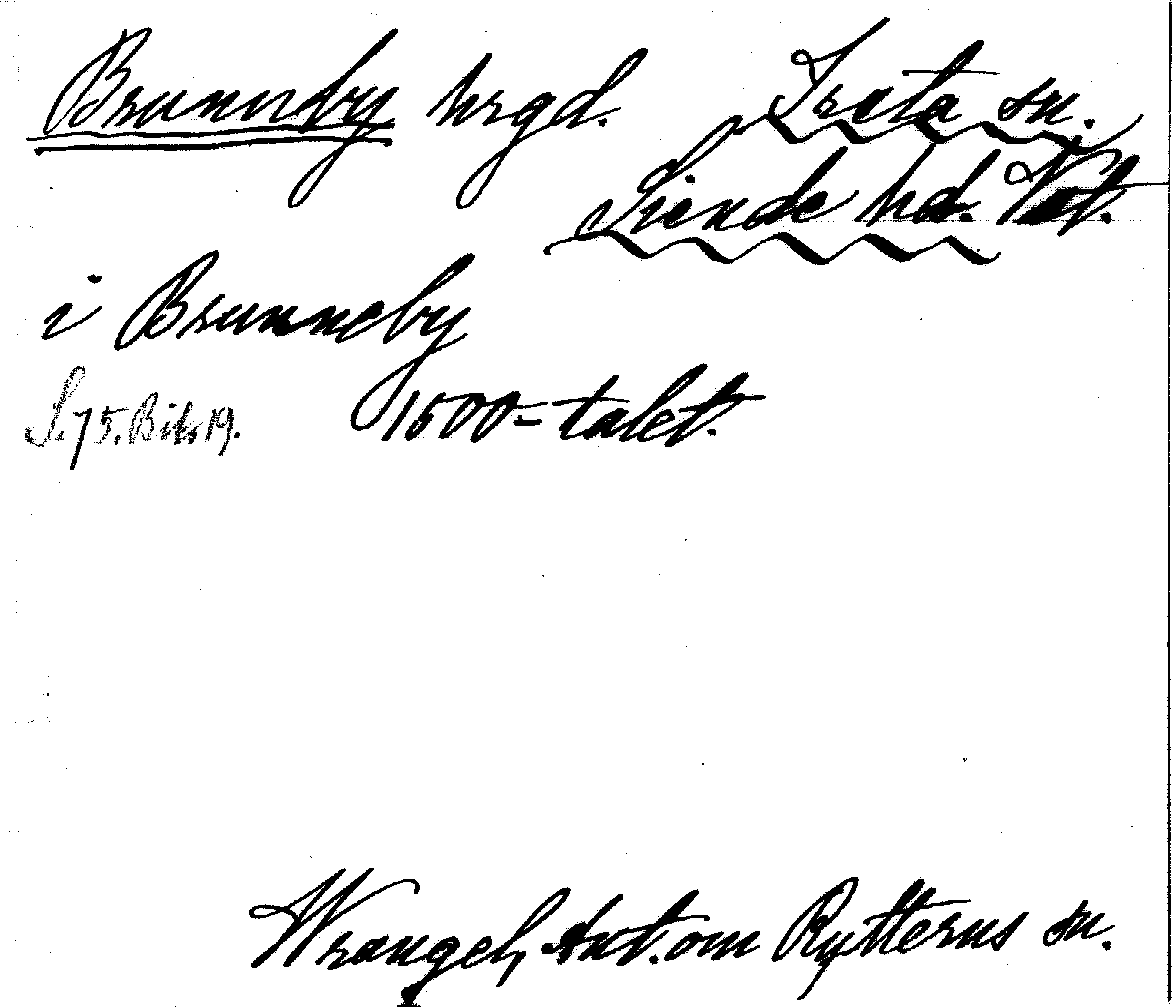 Brunneby hrgd. Irsta sn.
Siende hd. Vstm.
i Brunneby
S. 75. Bil. 19. 1500-talet.
Wrangel, Ant. om Rytterns sn.